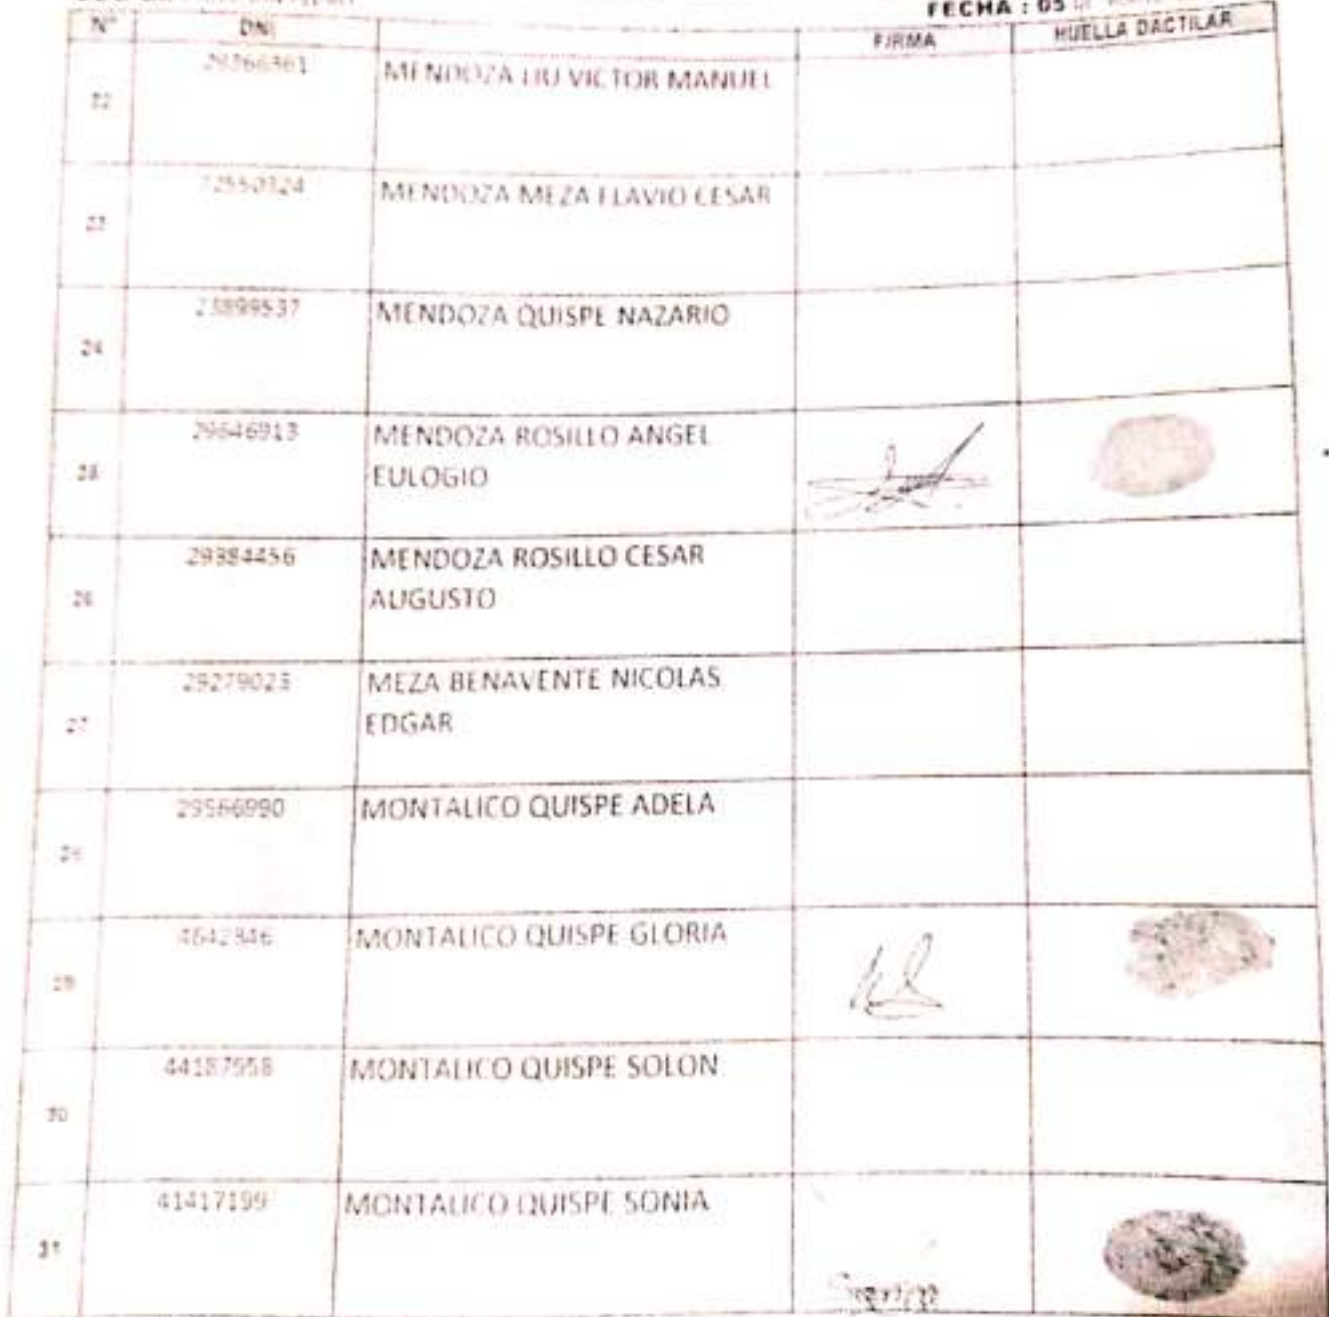 FECHA : 05
N° DNI FIRMA HUELLA DACTILAR
22 29266361 MENDOZA LIU VICTOR MANUEL
23 72550324 MENDOZA MEZA FLAVIO CESAR
24 23899537 MENDOZA QUISPE NAZARIO
25 29646913 MENDOZA ROSILLO ANGEL
EULOGIO
26 29384456 MENDOZA ROSILLO CESAR
AUGUSTO
27 29279023 MEZA BENAVENTE NICOLAS
EDGAR
28 29566990 MONTALICO QUISPE ADELA
29 4642346 MONTALICO QUISPE GLORIA
30 44187958 MONTALICO QUISPE SOLON
31 41417199 MONTALICO QUISPE SONIA